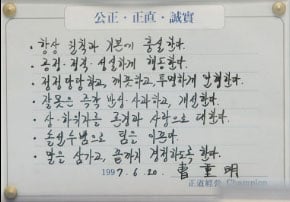 公正·正直·誠實
· 항상 원칙과 기본에 충실한다.
· 공정·정직·성실하게 행동한다.
· 정정당당하고, 깨끗하고, 투명하게 경영한다.
· 잘못은 즉각 반성·사과하고, 개선한다.
· 상·하위자를 존경과 사랑으로 대한다.
· 솔선수범으로 팀을 이끈다.
· 말을 삼가고, 끝까지 경청하도록 한다.
1997. 6. 20. 曺重明
正直經營 Champion